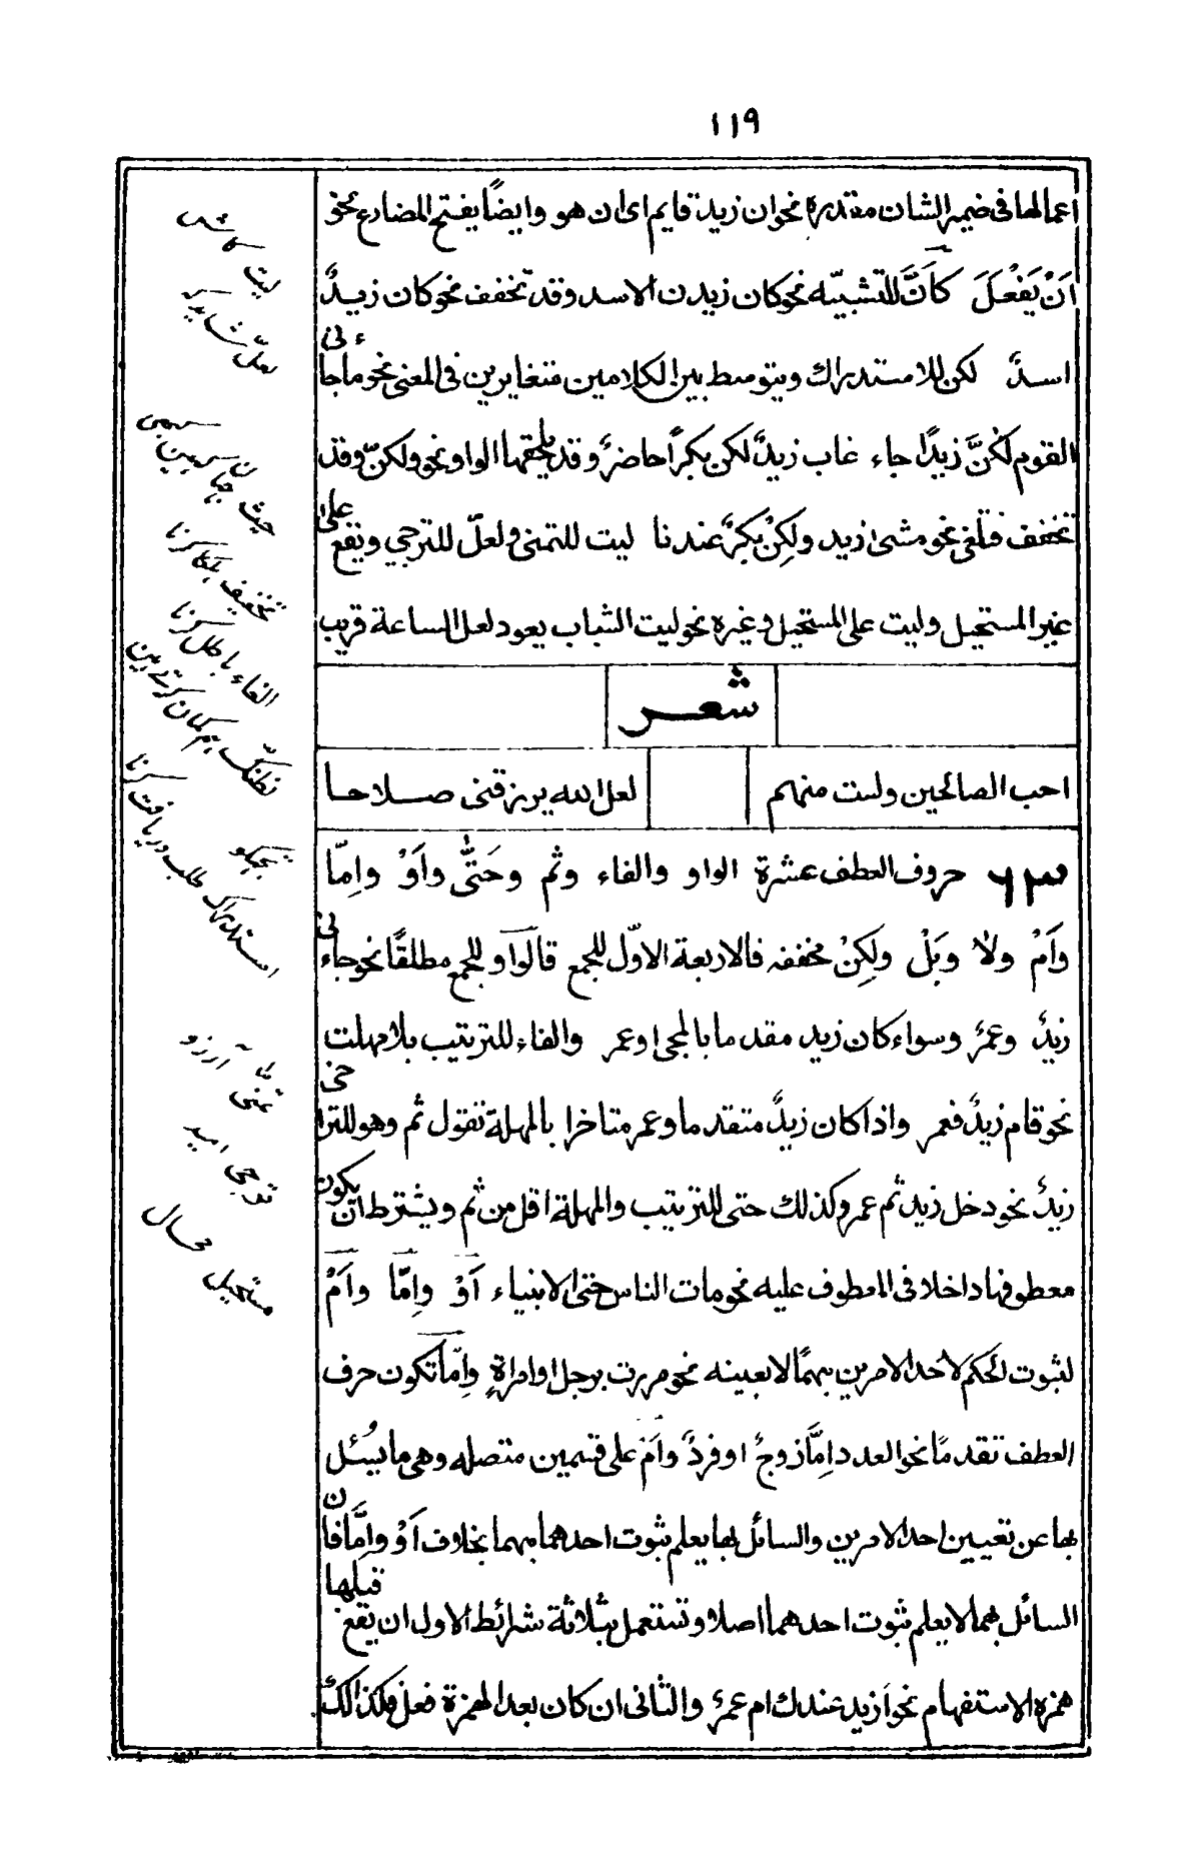 ١١٩
اعمالها فى ضمير الشان مقدرة نحو ان زيد قايم اى ان هو وايضًا يفتح المضارع نحو
اَنْ يَفْعَلَ كَاَنَّ للتشبيّه نحو كان زيدن الاسد وقد تخفف نحو كان زيدٌ
اسدٌ لكن للاستدراك ويتوسط بين الكلامين متغايرين فى المعنى نحو ما جاءنى
القوم لكنَّ زيدًا جاء غاب زيدٌ لكن بكرًا حاضرٌ وقد يلحقها الواو نحو ولكنّ وقد
تخفف فتلغى نحو مشىٰ زيد ولكِنْ بكرٌ عندنا ليت للتمنى ولعلّ للترجي وتقع علىٰ
غير المستحيل وليت على المستحيل وغيره نحو ليت الشباب يعود لعل الساعة قريب
شعر
احب الصالحين ولست منهم لعل الله يرزقنى صلاحا
٦٣ حروف العطف عشرة الواو والفاء وثم وحَتّٰى واَوْ واِمّا
واَمْ ولا وبَلْ ولكِنْ مخففه فالاربعة الاوّل للجمع فالواو للجمع مطلقًا نحو جاءنى
زيدٌ وعمرٌ وسواء كان زيد مقدما بالمجى او عمر والفاء للترتيب بلا مهلت
نحو قام زيدٌ فعمر واذا كان زيدٌ متقدما وعمر متاخرا بالمهلة تقول ثم وهو للتراخى
زيدٌ نحو دخل زيد ثم عمر وكذلك حتى للترتيب والمهلة اقل من ثم ويشترط ان يكون
معطوفها داخلا فى المعطوف عليه نحو مات الناس حتى الانبياء اَوْ واِمّا واَمْ
لثبوت الحكم لاحد الامرين مبهمًا لا بعينه نحو مررت برجل او امراةٍ واِمّا تكون حرف
العطف تقدمًا نحو العدد اِمَّا زوجٌ او فردٌ واَمْ على قسمين متصله وهى ما يُسئل
بها عن تعيين احد الامرين والسائل بها يعلم ثبوت احدهما مبهما بخلاف اَوْ واِمَّا فان
السائل بهما لا يعلم ثبوت احدهما اصلا وتستعمل بثلاثة شرائط الاول ان يقع قبلها
همزه الاستفهام نحو اَزيد عندك ام عمرٌ والثانى ان كان بعد الهمزة فعل فكذالك
ليت كاش
لعلّ شايد كہ
حيث جہاں كہيں
تخفيف ہلكا كرنا
الغاء باطل كرنا
نظنّك ہم گمان كرتے ہيں
تجہكو
استدراك طلب دريافت كرنا
تمنّى آرزو
ترجى اميد
مستحيل محال